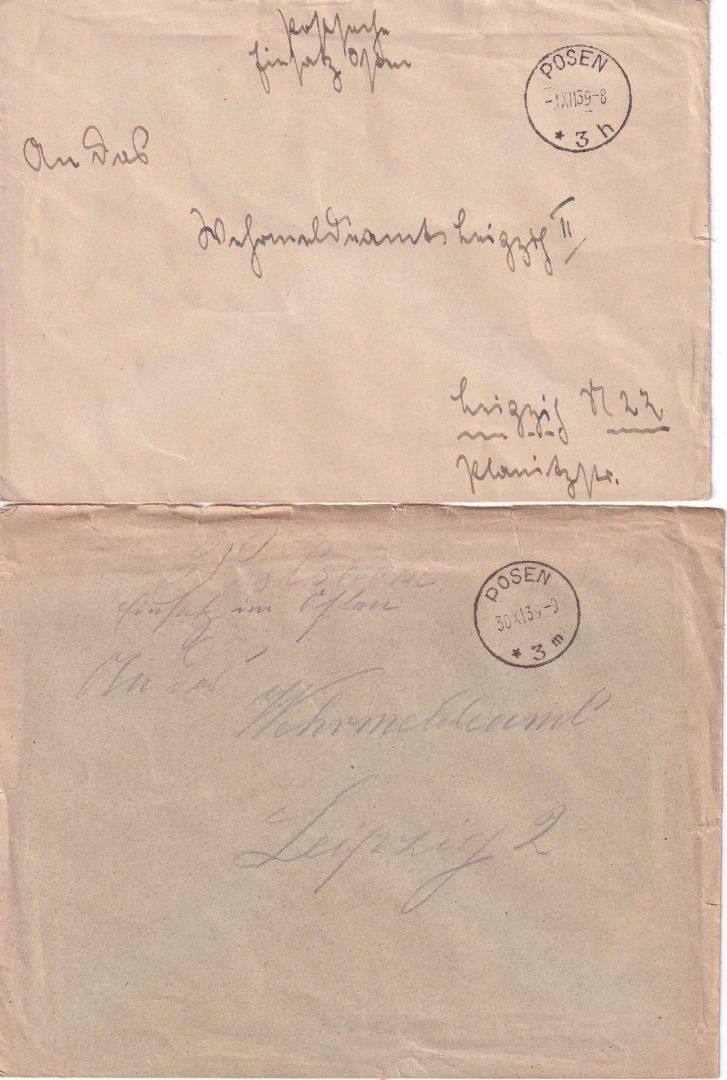 Postsache
Einsatz Osten
POSEN
-1XII39-8
* 3 h
An das
Wehrmeldeamts Leipzig II
Leipzig N 22
Planitzstr.
Einsatz im Osten
POSEN
30XI39-9
* 3 m
An das
Wehrmeldeamt
Leipzig 2